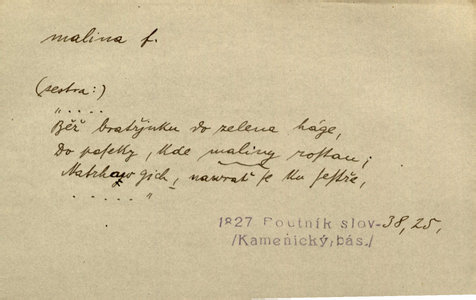 malina f.
(sestra:)
„ . . . .
Běž bratřjnku do zelena háge,
Do paseky, kde maliny rostau;
Natrhaw gich, nawrať se ku sestře,
. . . . . "
1827 Poutník slov- 38, 25,
/Kamenický, bás./